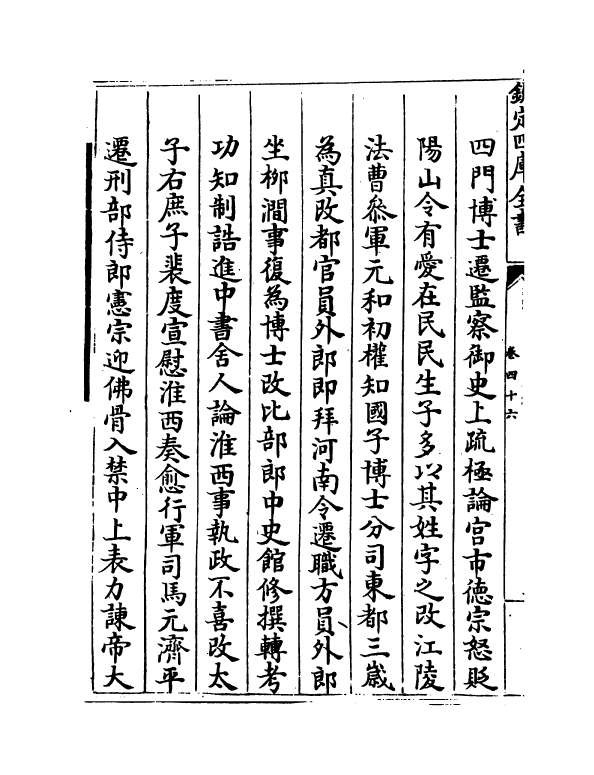 欽定四庫全書
卷四十六
四門博士遷監察御史上疏極論宫市德宗怒貶
陽山令有愛在民民生子多以其姓字之改江陵
法曹叅軍元和初權知國子博士分司東都三歳
為真改都官員外郎即拜河南令遷職方員外郎
坐栁澗事復為博士改比部郎中史館修撰轉考
功知制誥進中書舍人論淮西事執政不喜改太
子右庶子裴度宣慰淮西奏愈行軍司馬元濟平
遷刑部侍郎憲宗迎佛骨入禁中上表力諫帝大